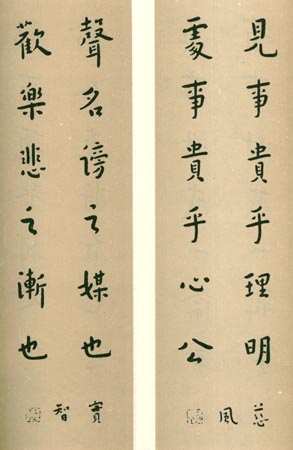 見事貴乎理明
處事貴乎心公
慈風
聲名謗之媒也
歡樂悲之漸也
實智